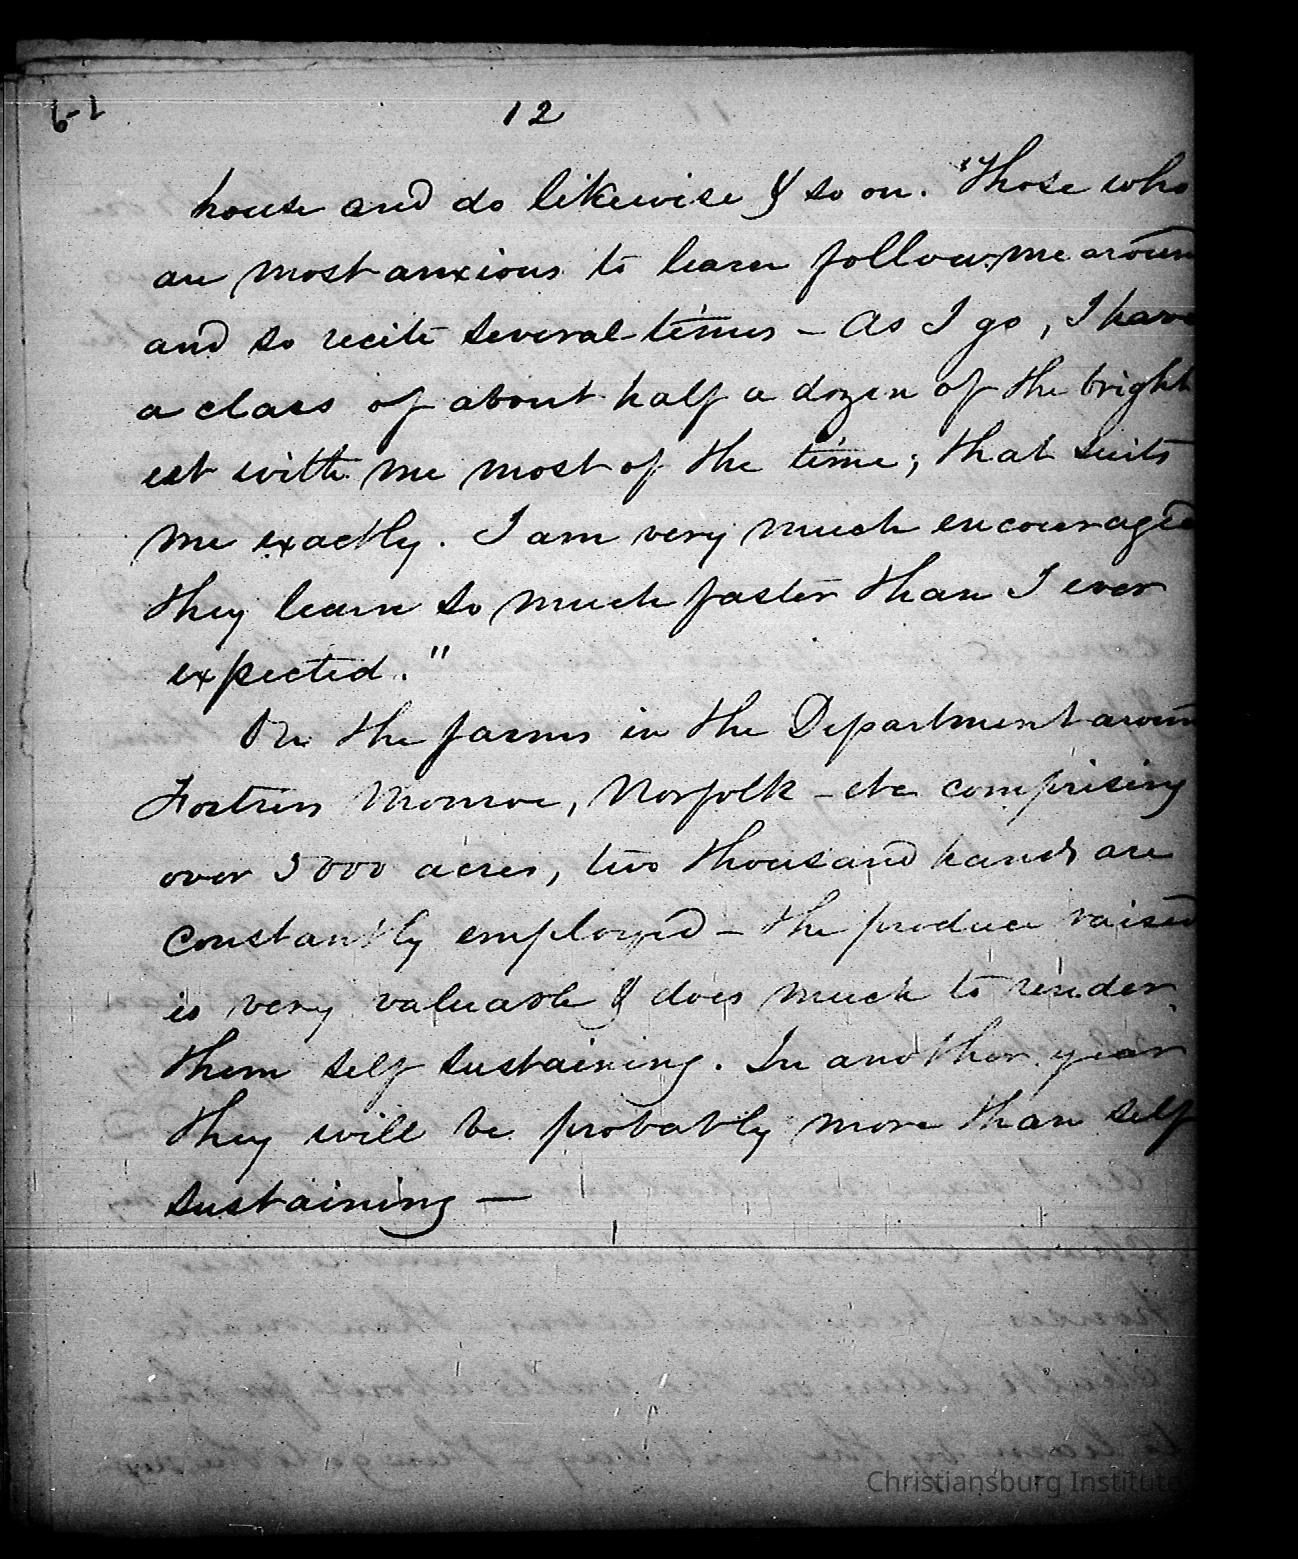 12
house and do likewise & so on. "Those who
are most anxious to learn follow me aroun
and so recite several times - As I go, I have
a class of about half a dozen of the bright
est with me most of the time; that suits
me exactly. I am very much encouraged
they learn so much faster than I ever
expected."
On the farms in the Department aroun
Fortress Monroe, Norfolk - etc comprising
over 5000 acres, two thousand hands are
constantly employed - the produce raised
is very valuable & does much to render
them self sustaining. In another year
they will be probably more than self
sustaining —
Christiansburg Institute